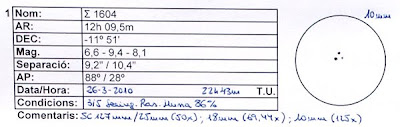 1 Nom: Σ 1604
10mm
AR: 12h 09,5m
DEC: -11° 51'
Mag. 6,6 - 9,4 - 8,1
Separació: 9,2" / 10,4"
AP: 88° / 28°
Data/Hora: 26-3-2010 22h43m T.U.
Condicions: 3/5 Seeing. Ras. Lluna 86%
Comentaris: SC 127mm/25mm (50x); 18mm (69,44x); 10mm (125x)